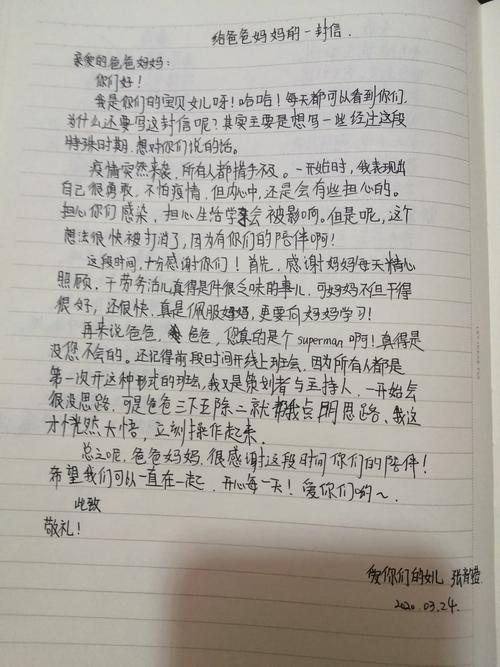 给爸爸妈妈的一封信.
亲爱的爸爸妈妈:
你们好!
我是你们的宝贝女儿呀!哈哈!每天都可以看到你们,
为什么还要写这封信呢?其实主要是想写一些经过这段
特殊时期,想对你们说的话。
疫情突然来袭,所有人都措手不及。一开始时,我表现出
自己很勇敢,不怕疫情,但内心中,还是会有些担心的。
担心你们感染,担心生活学习会被影响。但是呢,这个
想法很快被打消了,因为有你们的陪伴啊!
这段时间,十分感谢你们!首先,感谢妈妈每天精心
照顾,干劳务活儿真得是件很乏味的事儿,可妈妈不但干得
很好,还很快,真是佩服妈妈,更要向妈妈学习!
再来说爸爸,爸爸,您真的是个superman啊!真得是
没您不会的。还记得前段时间开线上班会,因为所有人都是
第一次开这种形式的班会,我又是策划者与主持人,一开始会
很没思路,可是爸爸三下五除二就帮我点明思路,我这
才恍然大悟,立刻操作起来.
总之呢,爸爸妈妈,很感谢这段时间你们的陪伴!
希望我们可以一直在一起,开心每一天!爱你们哟~
此致
敬礼!
爱你们的女儿 张
2020.03.24.